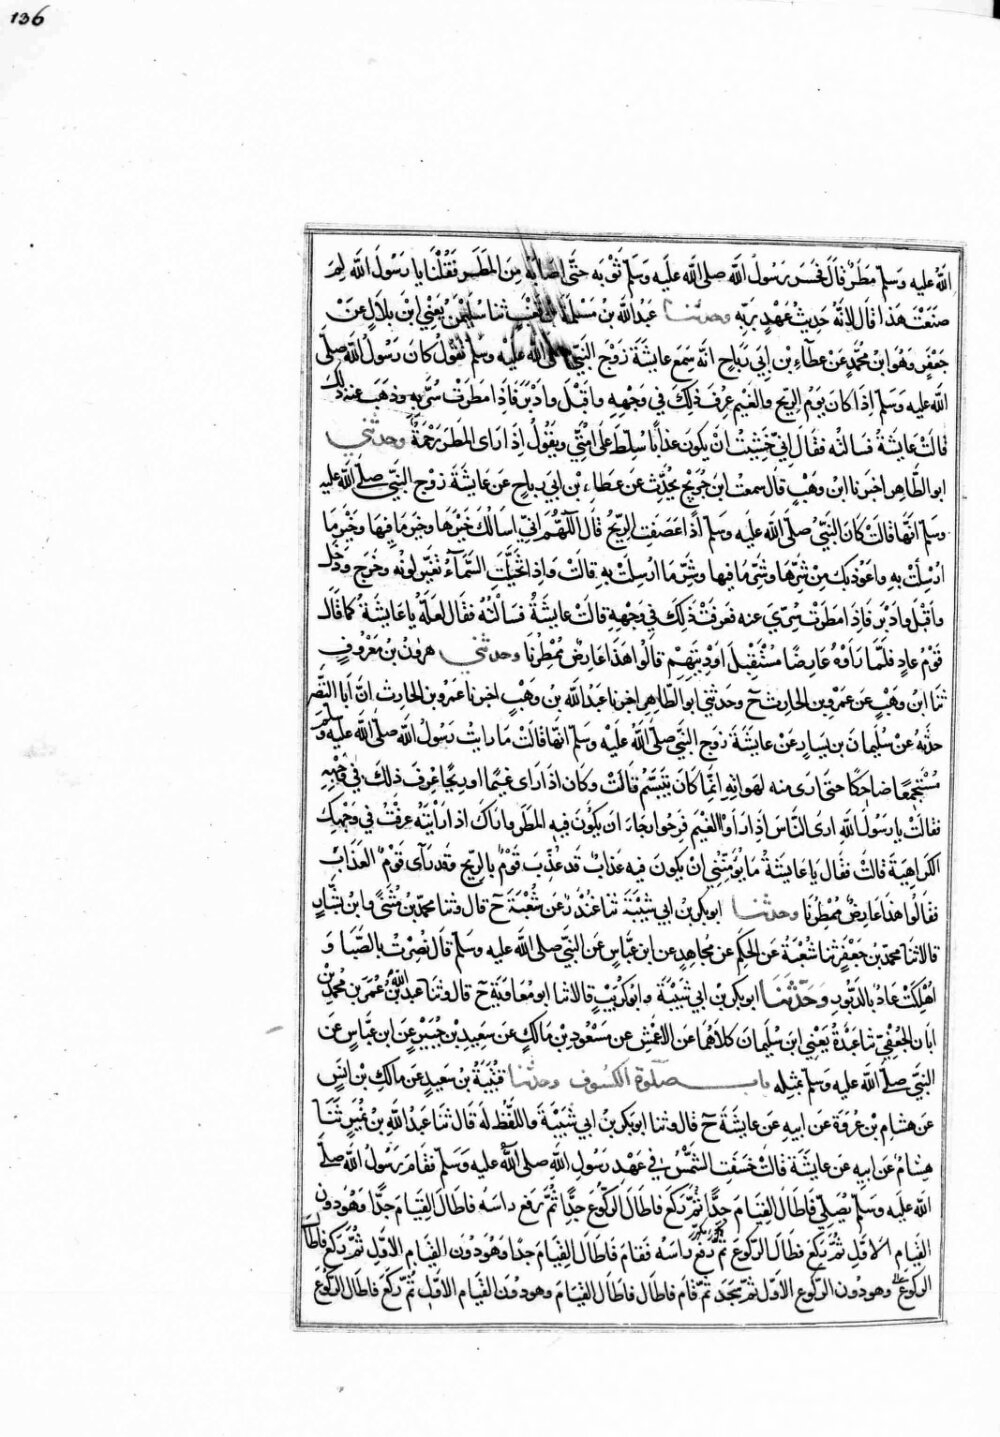 136
الله عليه وسلم مطر قال فحسر رسول الله صلى الله عليه وسلم ثوبه حتى اصابه من المطر فقلنا يا رسول الله لم
صنعت هذا قال لانه حديث عهد بربه وحدثنا عبد الله بن مسلمة بن قعنب ثنا سليمن يعني ابن بلال عن
جعفر وهو ابن محمد عن عطاء بن ابي رباح انه سمع عايشة زوج النبي صلى الله عليه وسلم تقول كان رسول الله صلى
الله عليه وسلم اذا كان يوم الريح والغيم عرف ذلك في وجهه واقبل وادبر فاذا مطرت سر به وذهب عنه ذلك
قالت عايشة فسالته فقال اني خشيت ان يكون عذابا سلط على امتي ويقول اذا راى المطر رحمة وحدثني
ابو الطاهر اخبرنا ابن وهب قال سمعت ابن جريج يحدث عن عطاء بن ابي رباح عن عايشة زوج النبي صلى الله عليه
وسلم انها قالت كان النبي صلى الله عليه وسلم اذا عصفت الريح قال اللهم اني اسالك خيرها وخير ما فيها وخير ما
ارسلت به واعوذ بك من شرها وشر ما فيها وشر ما ارسلت به قالت واذا تخيلت السماء تغير لونه وخرج ودخل
واقبل وادبر فاذا مطرت سري عنه فعرفت ذلك في وجهه قالت عايشة فسالته فقال لعله يا عايشة كما قال
قوم عاد فلما راوه عارضا مستقبل اوديتهم قالوا هذا عارض ممطرنا وحدثني هرون بن معروف
ثنا ابن وهب عن عمرو بن الحارث ح وحدثني ابو الطاهر اخبرنا عبد الله بن وهب اخبرنا عمرو بن الحارث ان ابا النضر
حدثه عن سليمان بن يسار عن عايشة زوج النبي صلى الله عليه وسلم انها قالت ما رايت رسول الله صلى الله عليه وسلم
مستجمعا ضاحكا حتى ارى منه لهواته انما كان يتبسم قالت وكان اذا راى غيما او ريحا عرف ذلك في وجهه
فقالت يا رسول الله ارى الناس اذا راوا الغيم فرحوا رجاء ان يكون فيه المطر واراك اذا رايته عرفت في وجهك
الكراهية قالت فقال يا عايشة ما يؤمنني ان يكون فيه عذاب قد عذب قوم بالريح وقد راى قوم العذاب
فقالوا هذا عارض ممطرنا وحدثنا ابو بكر بن ابي شيبة ثنا غندر عن شعبة ح قال وثنا محمد بن مثنى وابن بشار
قالا ثنا محمد بن جعفر ثنا شعبة عن الحكم عن مجاهد عن ابن عباس عن النبي صلى الله عليه وسلم قال نصرت بالصبا و
اهلكت عاد بالدبور وحدثنا ابو بكر بن ابي شيبة وابو كريب قالا ثنا ابو معاوية ح قال وثنا عبد الله بن عمر بن محمد بن
ابان الجعفي ثنا عبدة يعني ابن سليمان كلاهما عن الاعمش عن مسعود بن مالك عن سعيد بن جبير عن ابن عباس عن
النبي صلى الله عليه وسلم بمثله باب صلوة الكسوف وحدثنا قتيبة بن سعيد عن مالك بن انس
عن هشام بن عروة عن ابيه عن عايشة ح قال وثنا ابو بكر بن ابي شيبة واللفظ له قال ثنا عبد الله بن نمير ثنا
هشام عن ابيه عن عايشة قالت خسفت الشمس في عهد رسول الله صلى الله عليه وسلم فقام رسول الله صلى
الله عليه وسلم يصلي فاطال القيام جدا ثم ركع فاطال الركوع جدا ثم رفع راسه فاطال القيام جدا وهو دون
القيام الاول ثم ركع فطال الركوع ثم رفع راسه فقام فاطال القيام جدا وهو دون القيام الاول ثم ركع فاطال
الركوع وهو دون الركوع الاول ثم سجد ثم قام فاطال فاطال القيام وهو دون القيام الاول ثم ركع فاطال الركوع